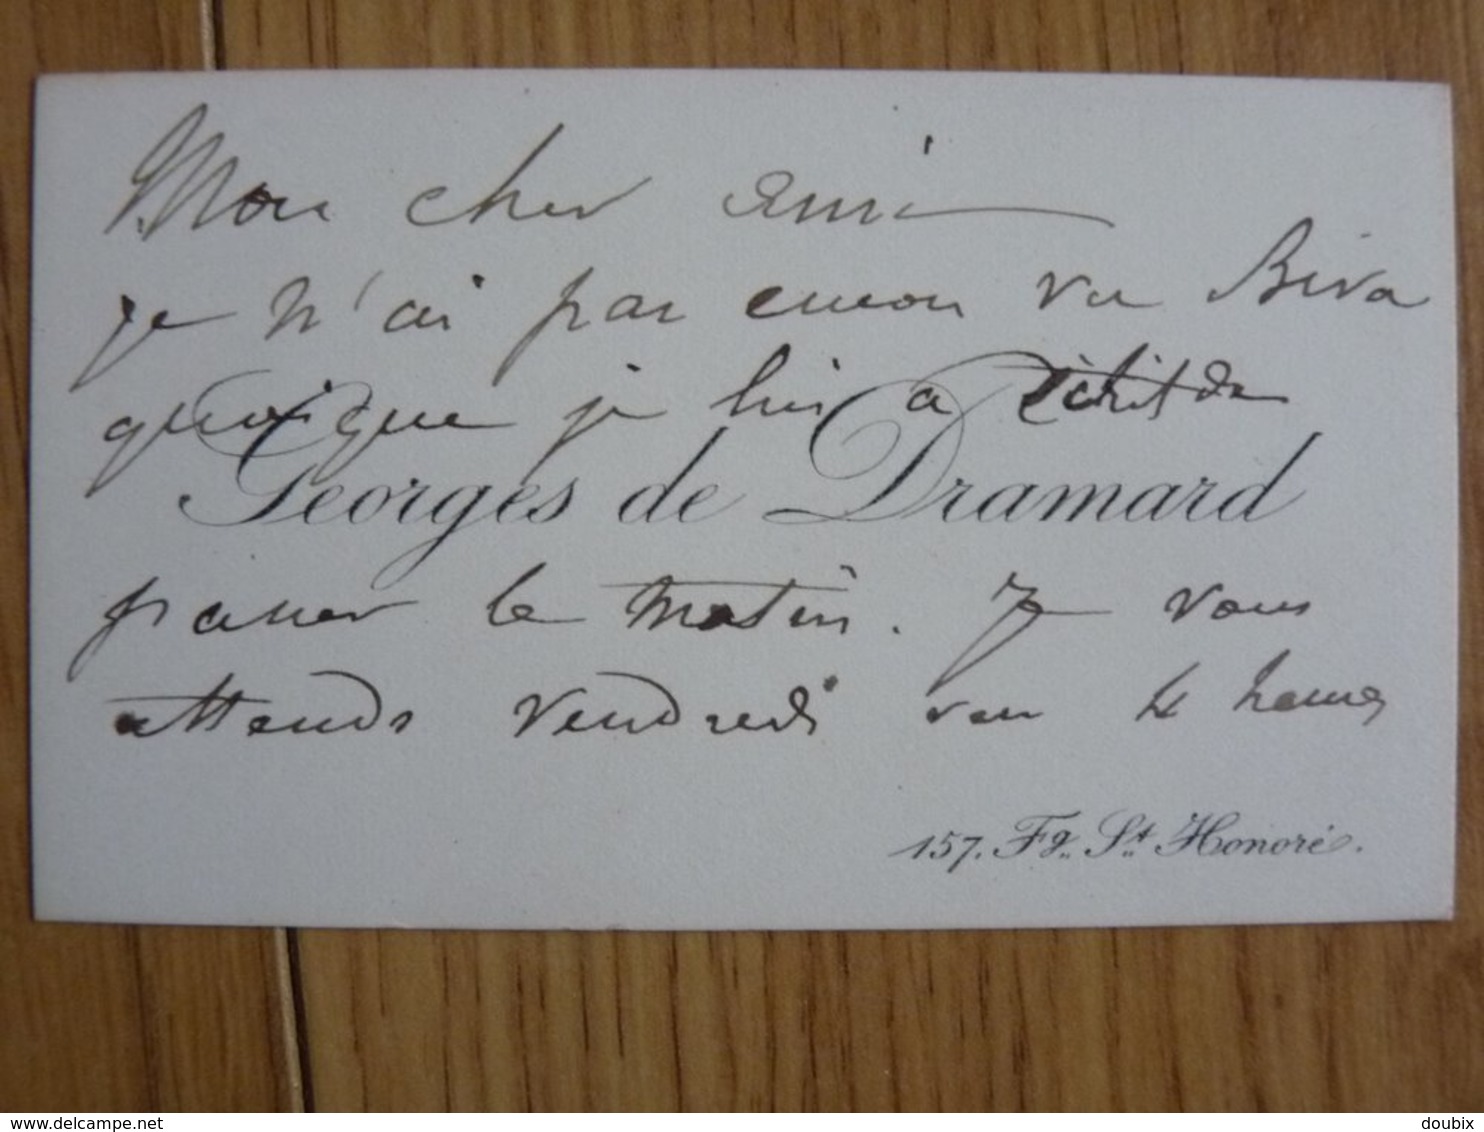 Mon cher ami
je n'ai pas encore vu Biva
quoique je lui a écrit de
Georges de Dramard
passer le matin. Je vous
attends vendredi vers 4 heures
157. Fg. St. Honoré.
delcampe.net
doubix